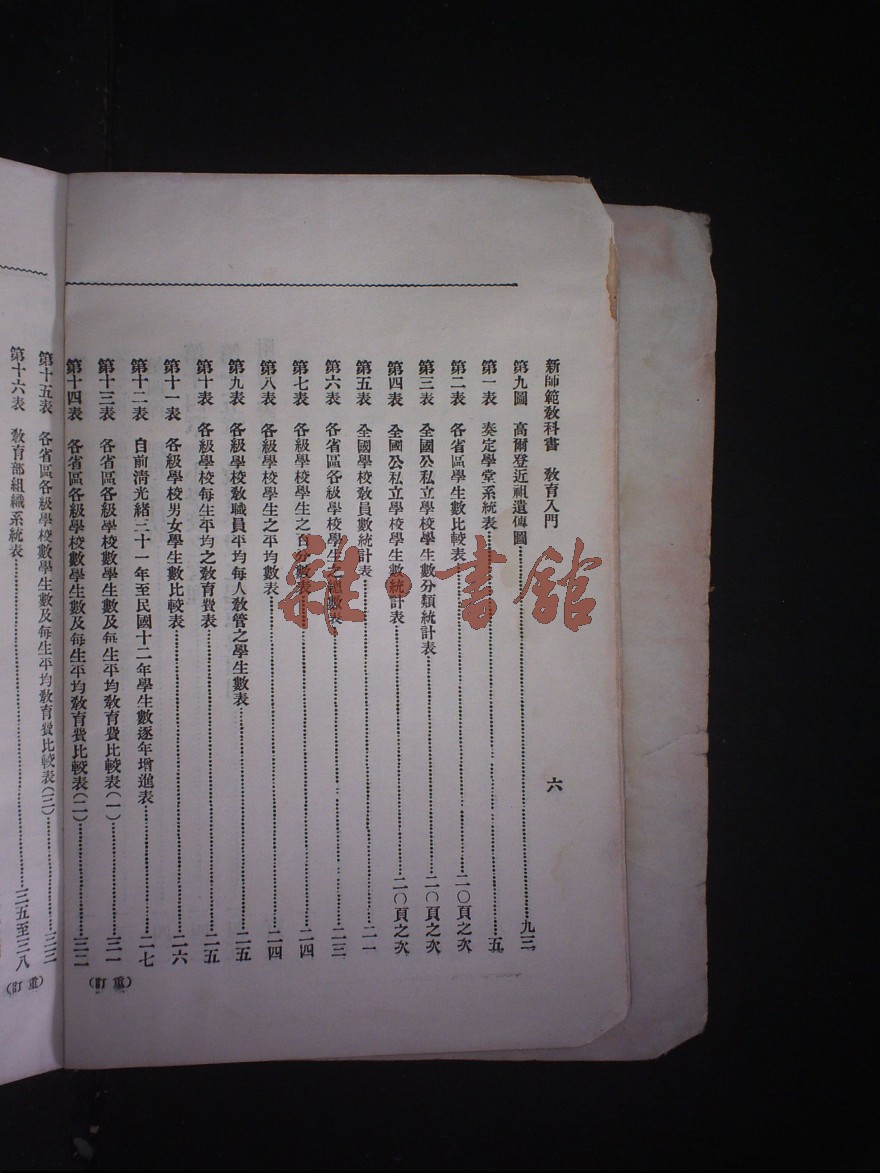 新師範教科書　教育入門　六
第九圖　高爾登近祖遺傳圖……九三
第一表　奏定學堂系統表……五
第二表　各省區學生數比較表……二〇頁之次
第三表　全國公私立學校學生數分類統計表……二〇頁之次
第四表　全國公私立學校學生數統計表……二〇頁之次
第五表　全國學校教員數統計表……二一
第六表　各省區各級學校學生之總數表……二三
第七表　各級學校學生之百分數表……二四
第八表　各級學校學生之平均數表……二四
第九表　各級學校教職員平均每人教管之學生數表……二五
第十表　各級學校每生平均之教育費表……二五
第十一表　各級學校男女學生數比較表……二六
第十二表　自前清光緒三十一年至民國十二年學生數逐年增進表……二七
第十三表　各省區各級學校數學生數及每生平均教育費比較表（一）……三一
第十四表　各省區各級學校數學生數及每生平均教育費比較表（二）……三二
（重訂）
第十五表　各省區各級學校數學生數及每生平均教育費比較表（三）……三三
第十六表　教育部組織系統表……三五至三八
（重訂）
雜·書館